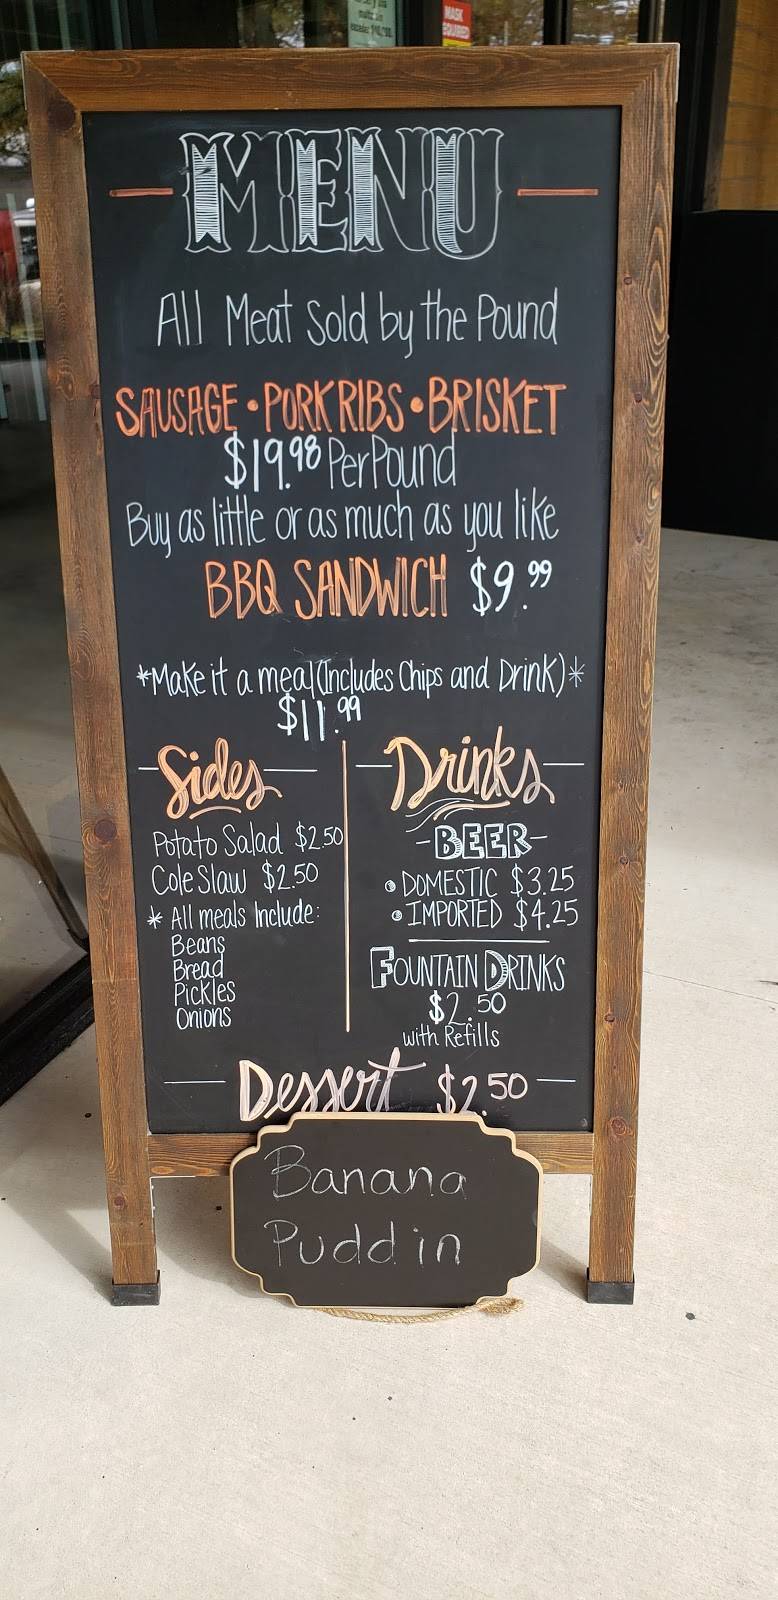 MASK
REQUIRED
MENU
All Meat Sold by the Pound
SAUSAGE • PORK RIBS • BRISKET
$19.98 Per Pound
Buy as little or as much as you like
BBQ SANDWICH $9.99
*Make it a meal (Includes Chips and Drink)*
$11.99
Sides
Potato Salad $2.50
Cole Slaw $2.50
* All meals Include:
Beans
Bread
Pickles
Onions
Drinks
-BEER-
• DOMESTIC $3.25
• IMPORTED $4.25
FOUNTAIN DRINKS
$2.50
with Refills
Dessert $2.50
Banana
Puddin